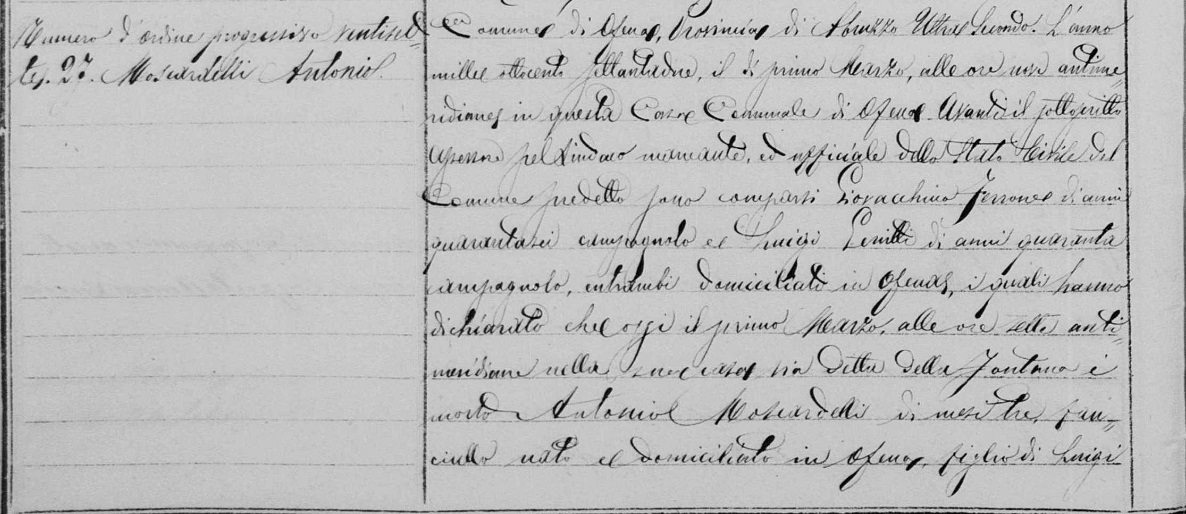 Numero d'ordine progressivo ventiset=
te. 27. Moscardelli Antonio.
Comune di Ofena, Provincia di Abruzzo Ultra Secondo. L'anno
mille ottocento settantadue, il dì primo Marzo, alle ore nove antime=
ridiane in questa Casa Comunale di Ofena. Avanti il sottoscritto
Assessore pel Sindaco mancante, ed uffiziale dello Stato Civile del
Comune predetto sono comparsi Giovacchino Ferrone di anni
quarantasei campagnolo e Luigi di anni quaranta
campagnolo, entrambi domiciliati in Ofena, i quali hanno
dichiarato che oggi il primo Marzo, alle ore sette anti=
meridiane nella sua casa via detta della Fontana è
morto Antonio Moscardelli di mesi tre, fan=
ciullo nato e domiciliato in Ofena, figlio di Luigi